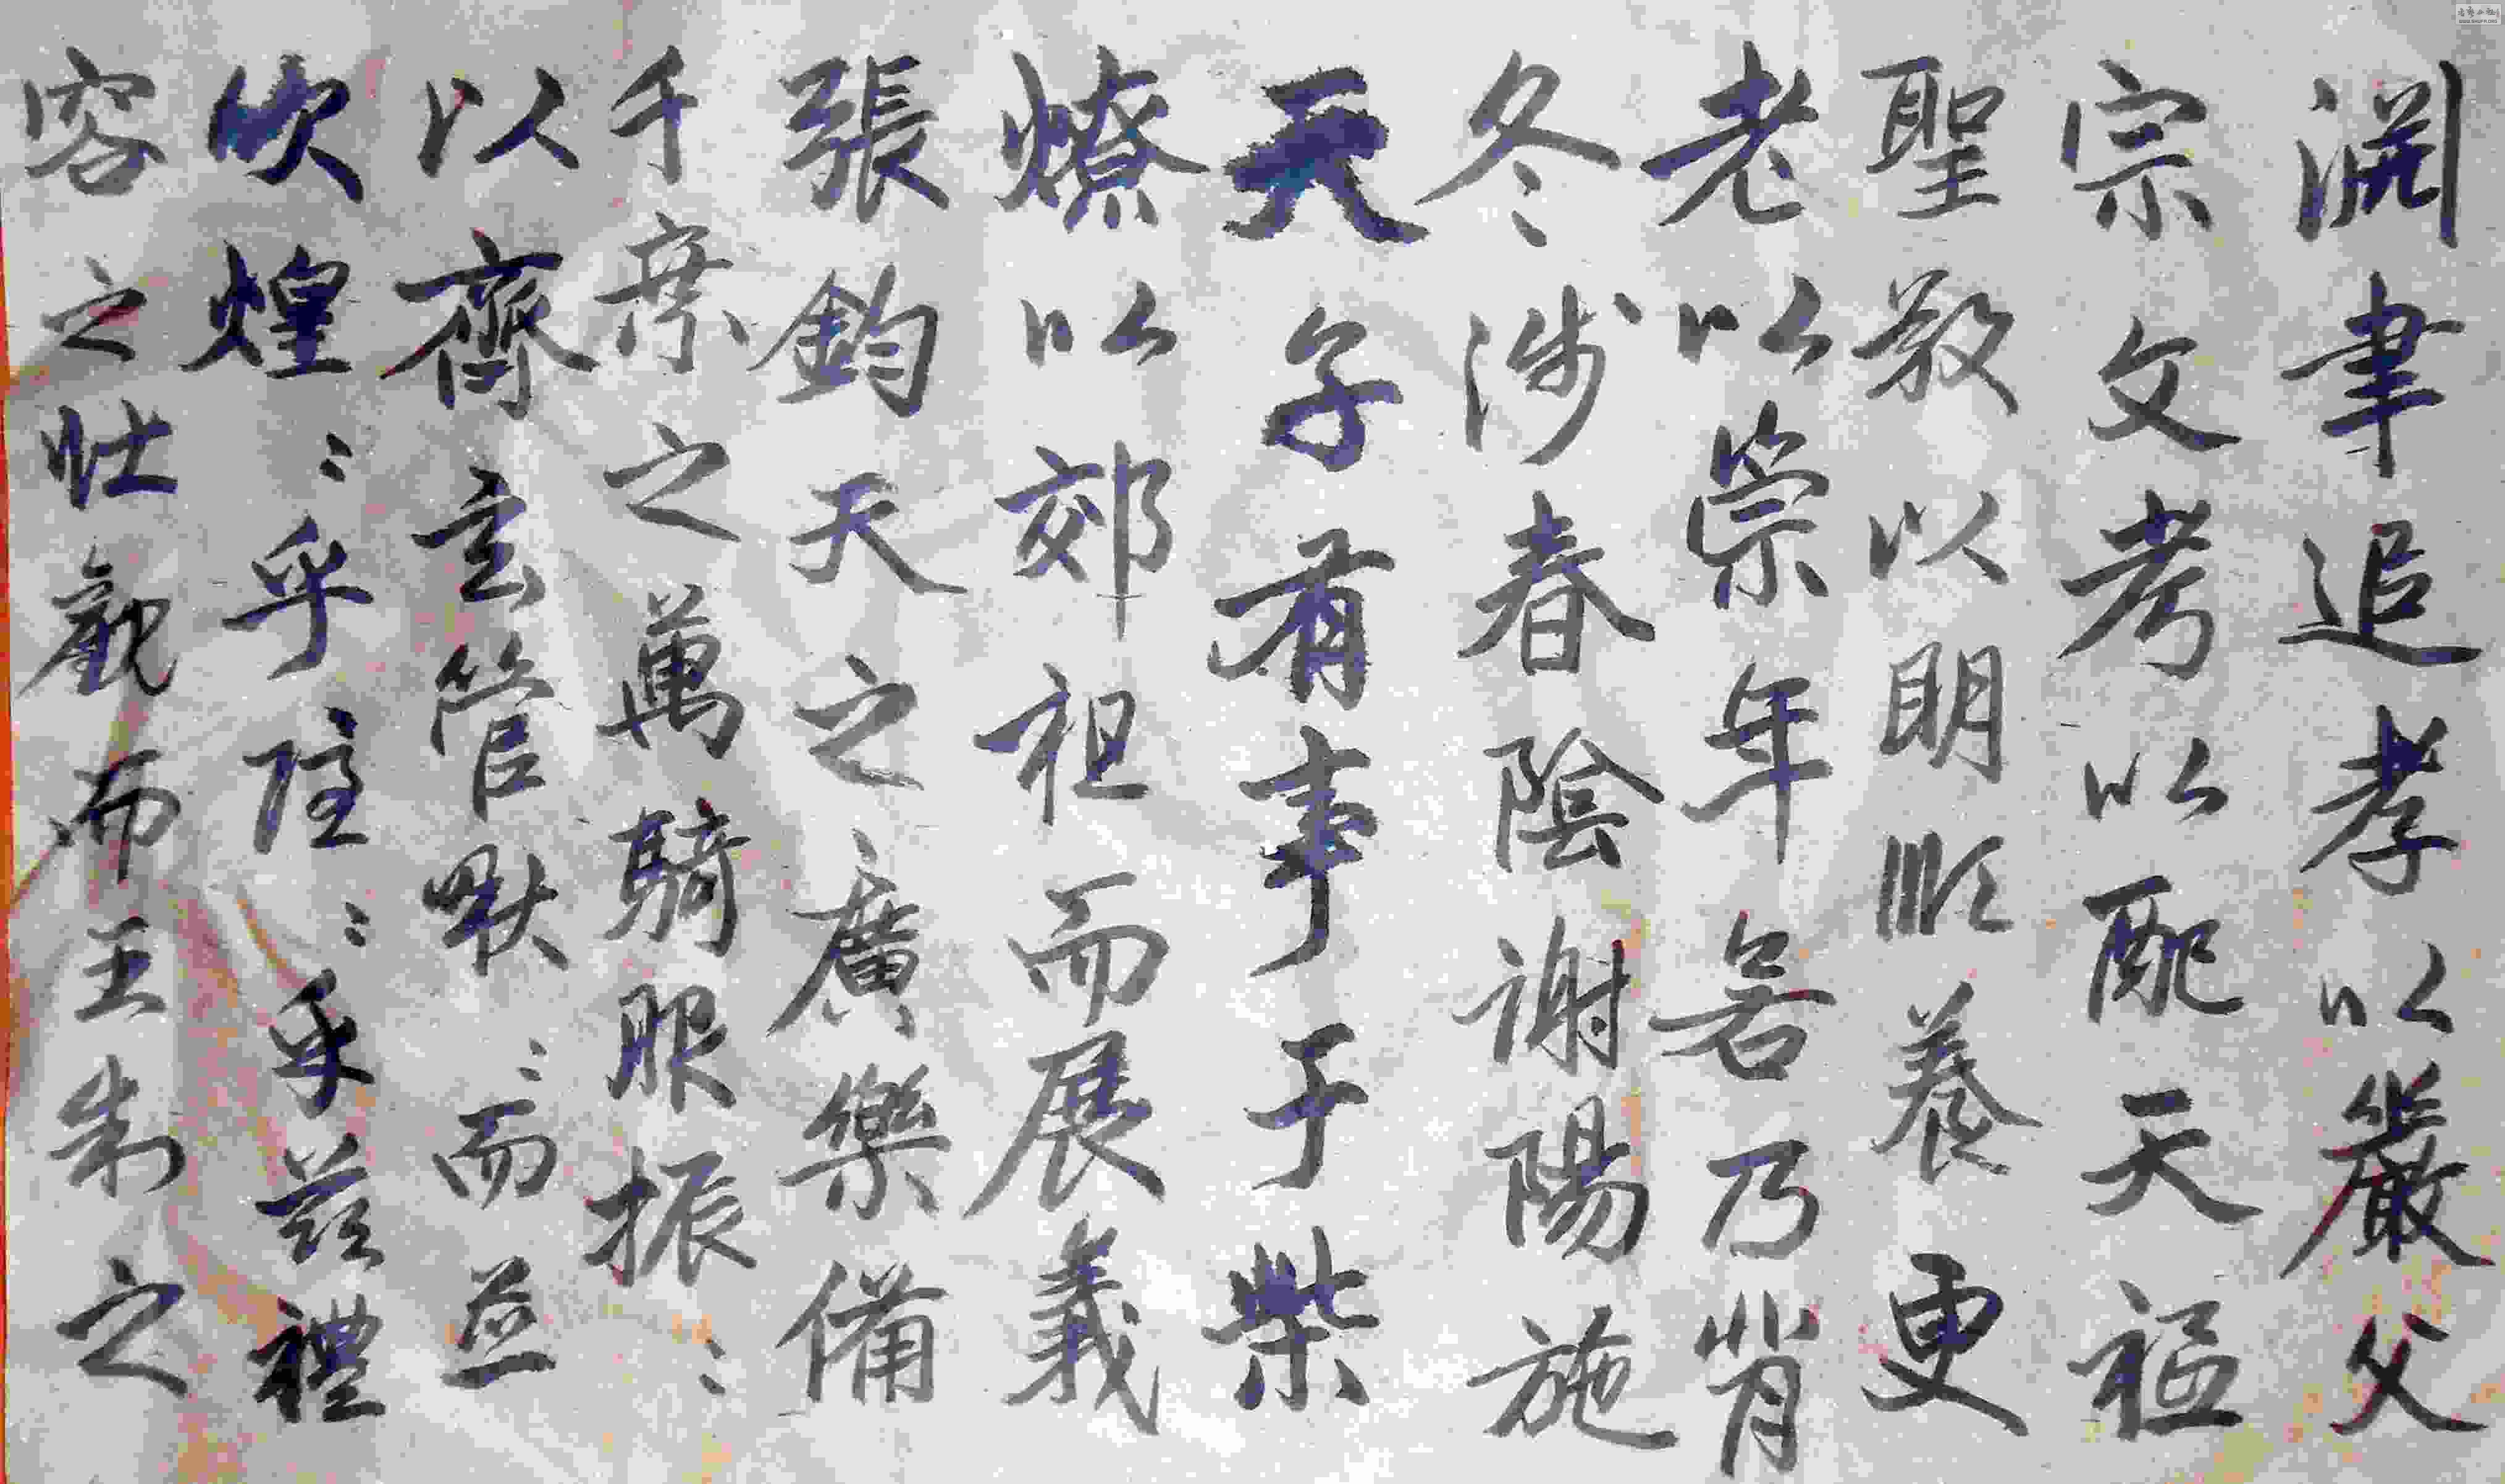 淵聿追孝以嚴父
宗文考以配天祗
聖敬以明順養更
老以崇年若乃背
冬涉春陰謝陽施
天子有事于柴
燎以郊祖而展義
張鈞天之廣樂備
千乘之萬騎服振〻
以齊玄管啾〻而並
吹煌〻乎隱〻乎茲禮
容之壯觀而王制之